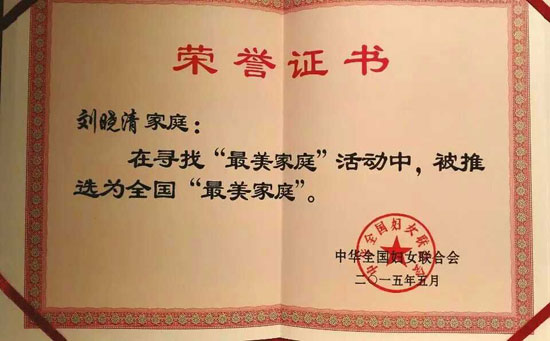 荣誉证书
刘晓清家庭：
在寻找“最美家庭”活动中，被推
选为全国“最美家庭”。
中华全国妇女联合会
中华全国妇女联合会
二〇一五年五月